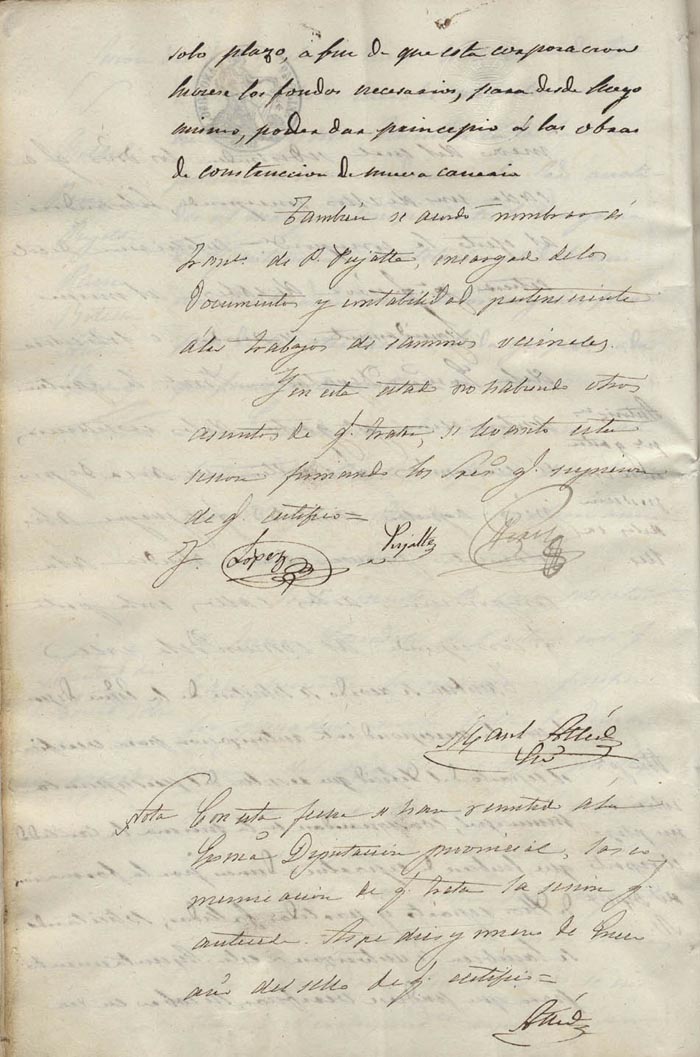 solo plazo, a fin de que esta corporacion
hiciese los fondos necesarios, para desde luego
mismo, poder dar principio á las obras
de construccion de nueva
Tambien se acordó nombrar á
de P. Pujalte, encargad de los
Documentos y contabilidad perteneciente
á los trabajos de caminos vecinales.
Y en este estado no habiendo otros
asuntos de q.e tratar, se levantó esta
sesion firmando los Sres q.e
de q.e certifico =
J. Lopez
Pujalte
Man.l
Srio
Nota Con esta fecha se han remitido á la
Excma Diputacion provincial, las co
municacion de q.e trata la sesion q.e
antecede. Aspe diez y nueve de Enero
año del sello de q.e certifico =